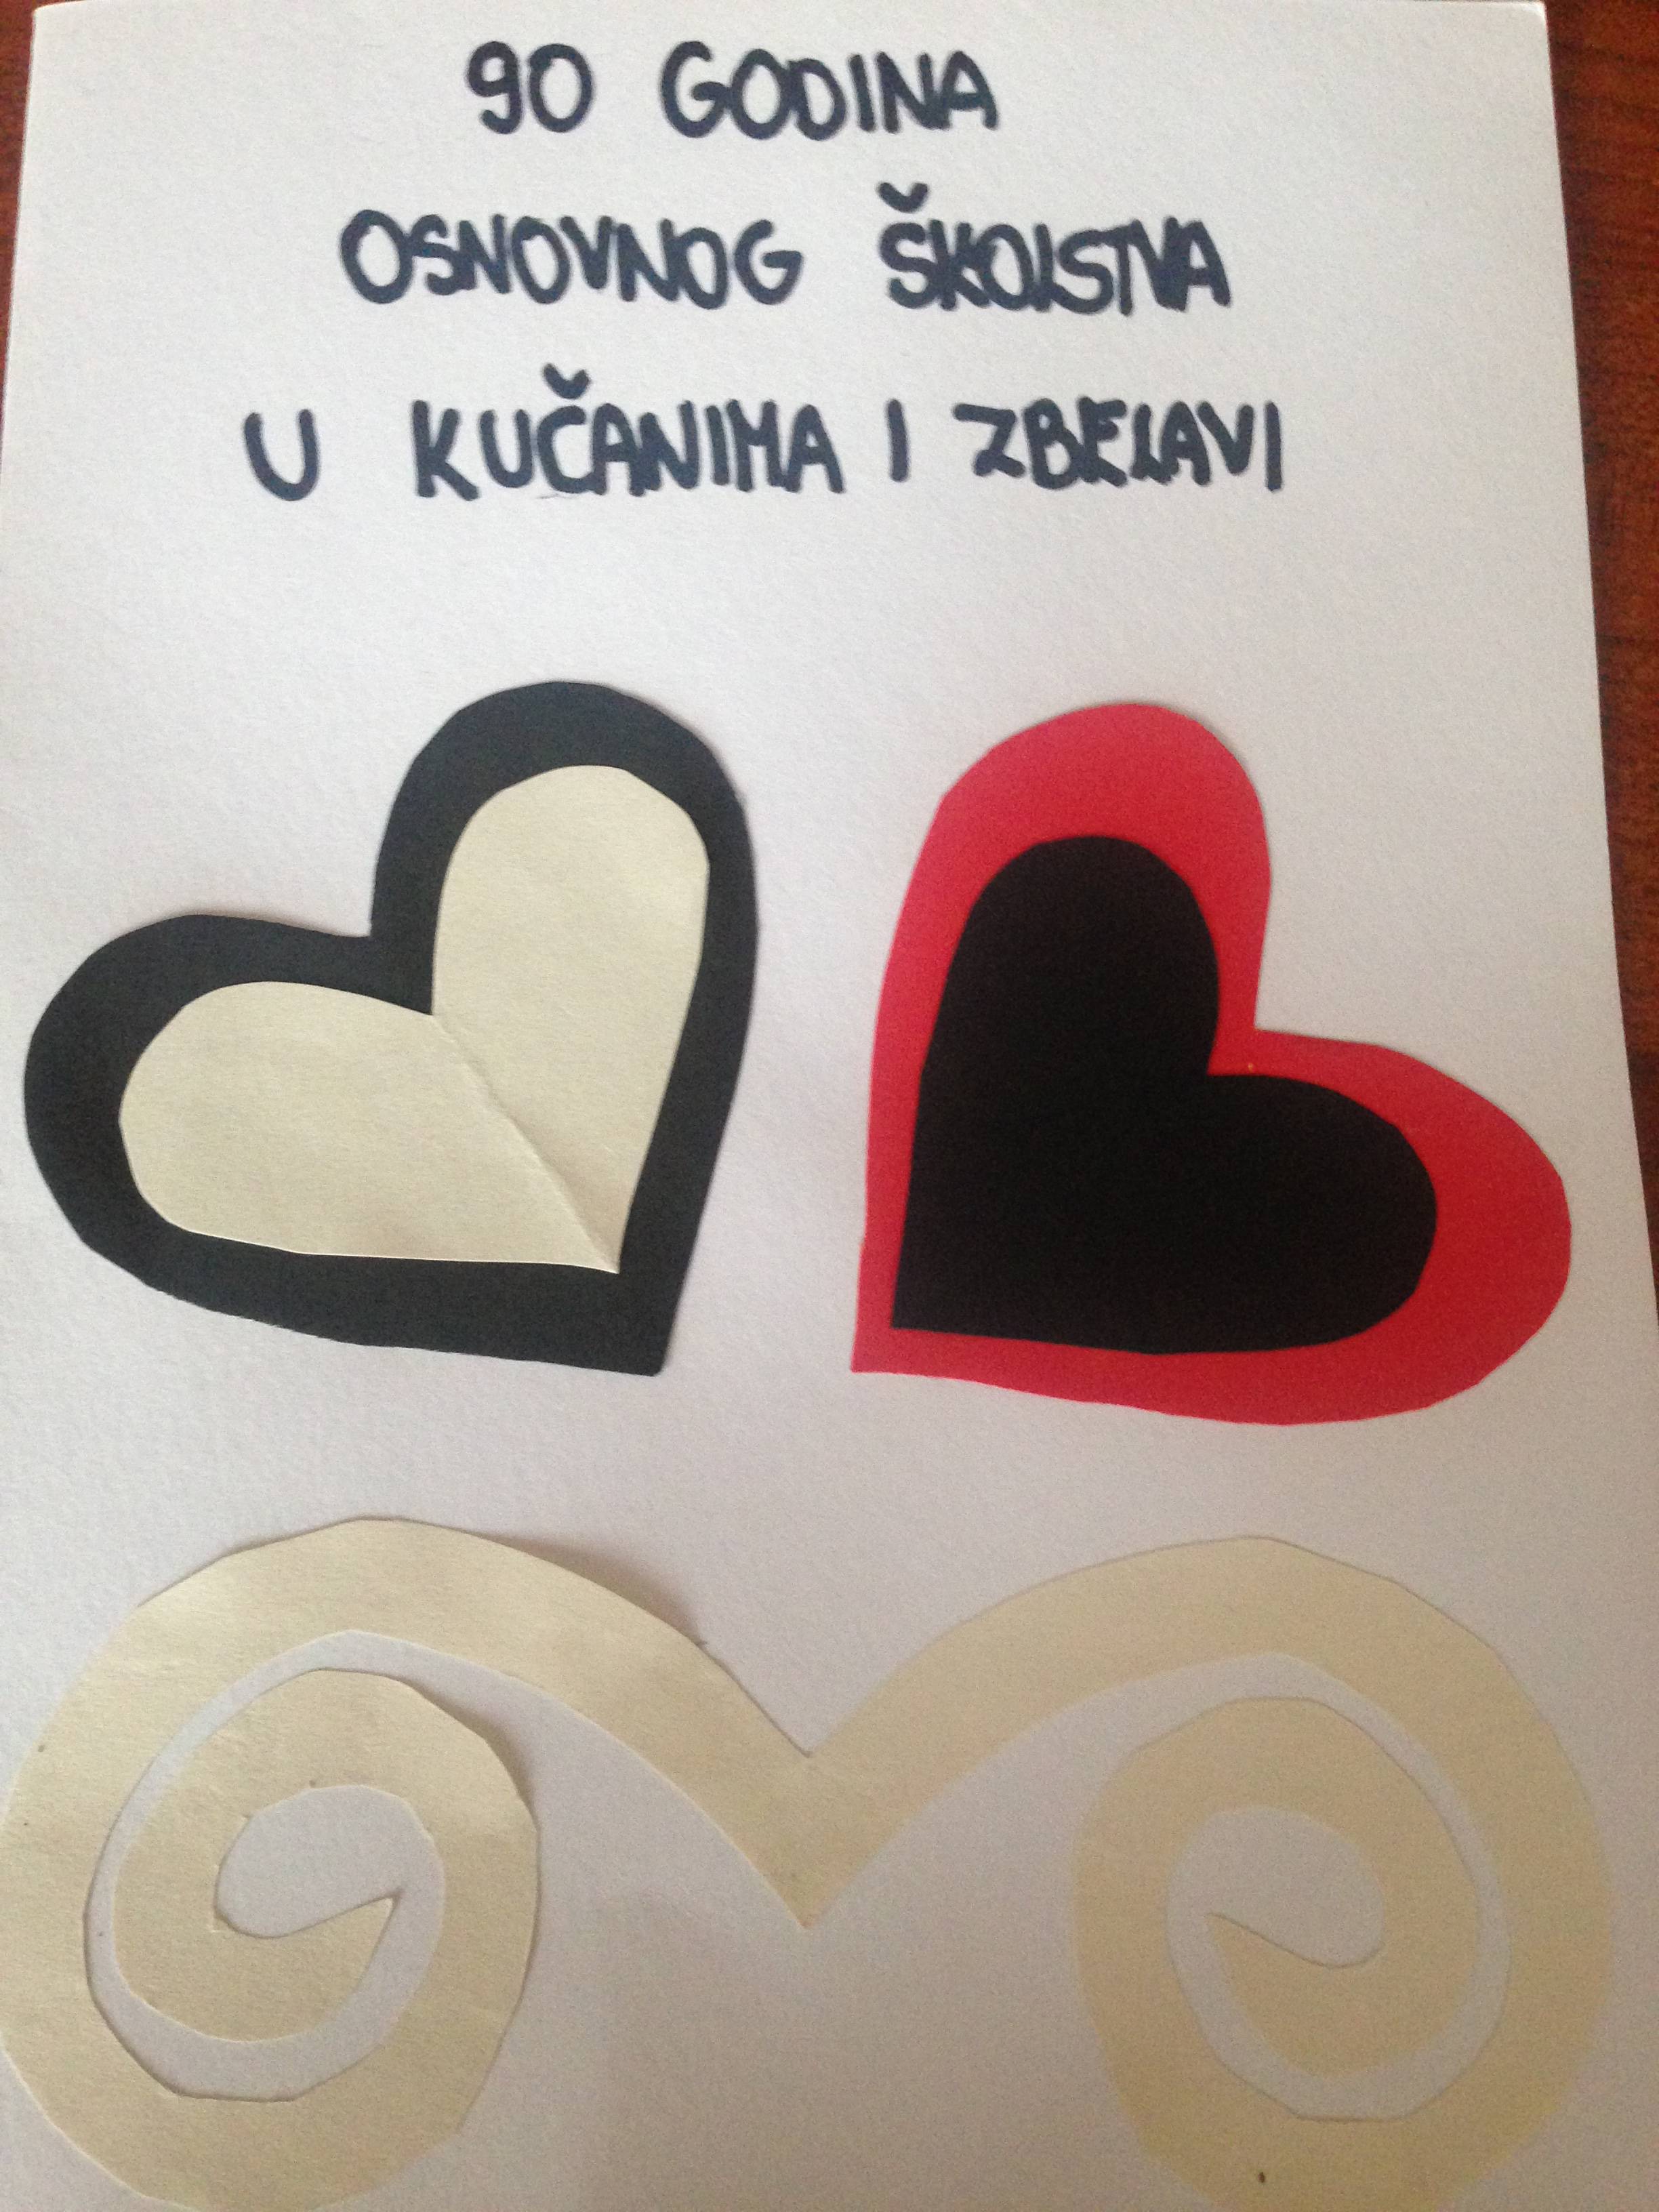 90 GODINA
OSNOVNOG ŠKOLSTVA
U KUČANIMA I ZBELAVI